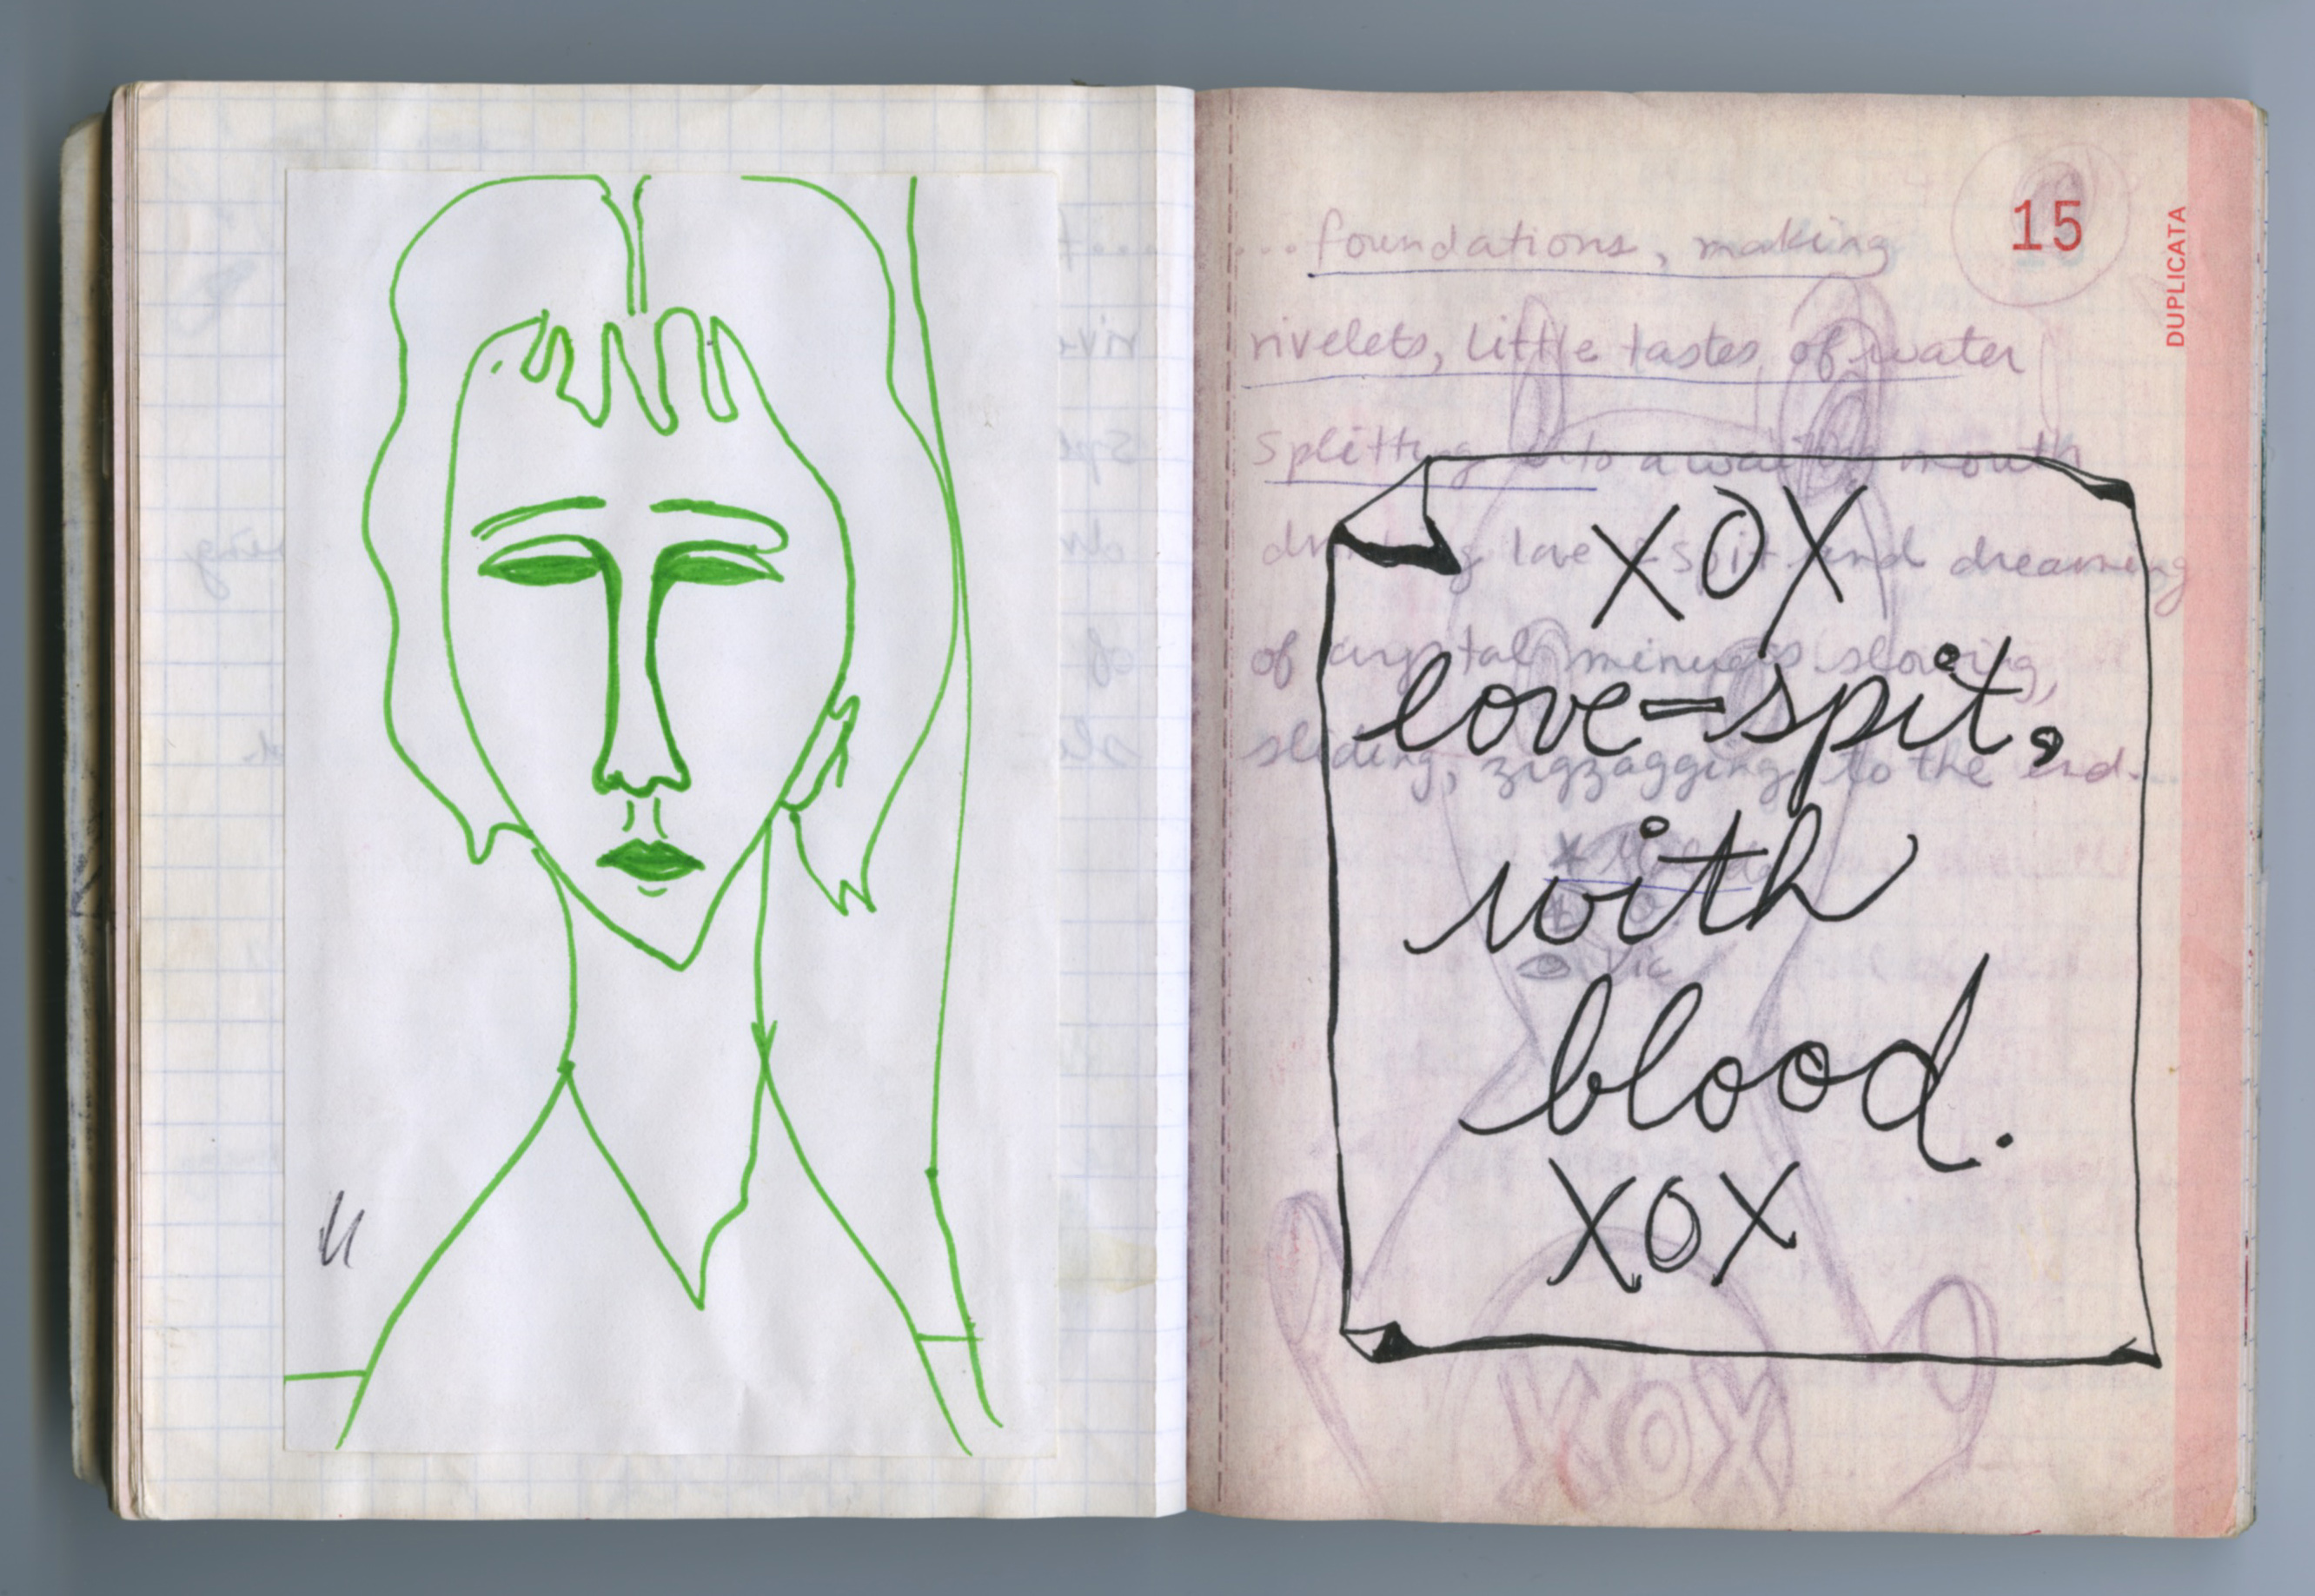 15
DUPLICATA
...foundations, making
rivelets, little tastes of water
splitting into a waiting mouth
drinking love-spit and dreaming
of crystal minuets slowing,
sliding, zigzagging to the end...
XOX
love-spit,
with
blood.
XOX
XOX